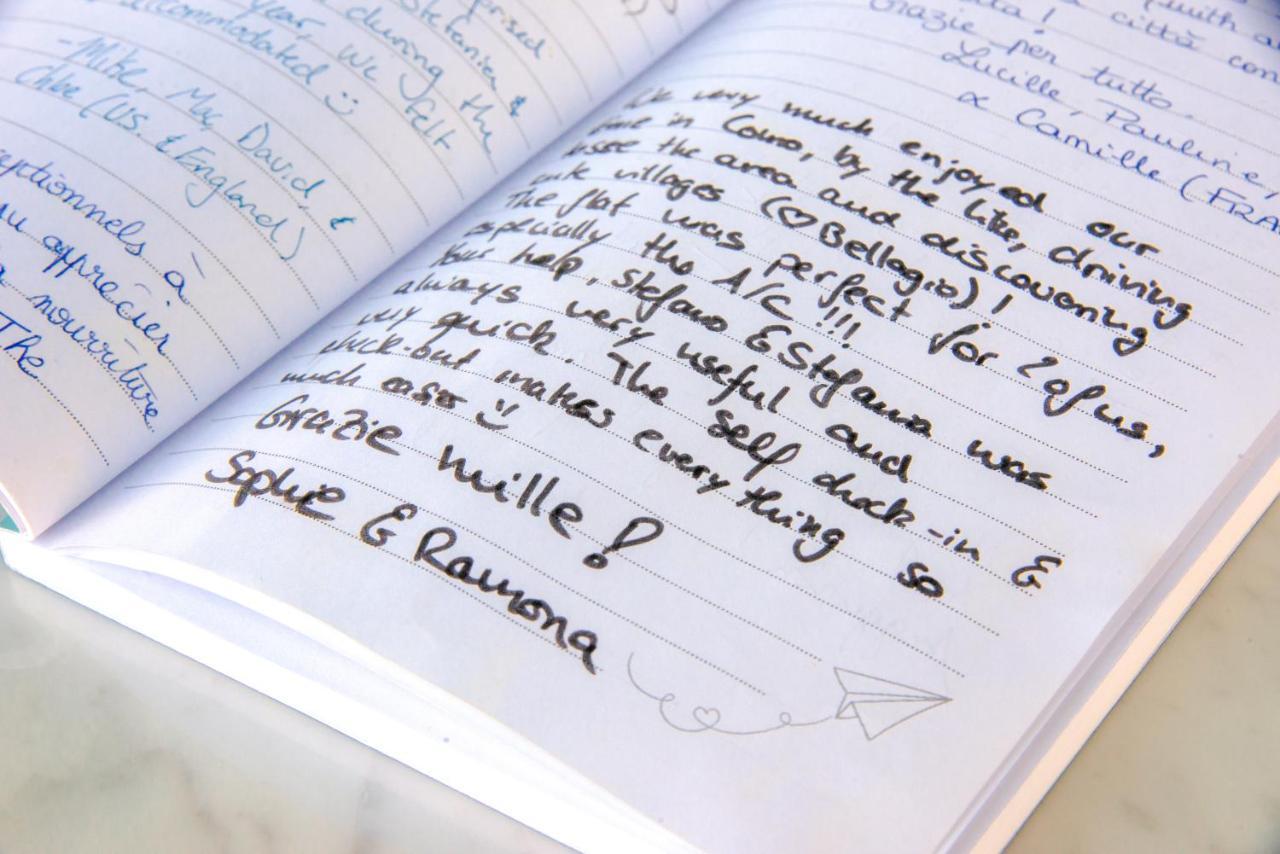 prised
Stefania &
during the
year, We felt
accommodated :)
-Mike, Mac, David, &
Chloe (US. & England)
ceptionnels à
pu apprécier
nourriture
The
(with a
città con
Grazie per tutto.
Lucille, Pauline,
& Camille (FRA
We very much enjoyed our
time in Como, by the like, driving
the area and discovering
cute villages (♡Bellagio)!
The flat was perfect for 2 of us,
especially the A/C !!!
Your help, Stefano & Stefania was
always very useful and
very quick. The self check-in &
check-out makes everything so
much easier :)
Grazie mille!
Sophie & Ramona